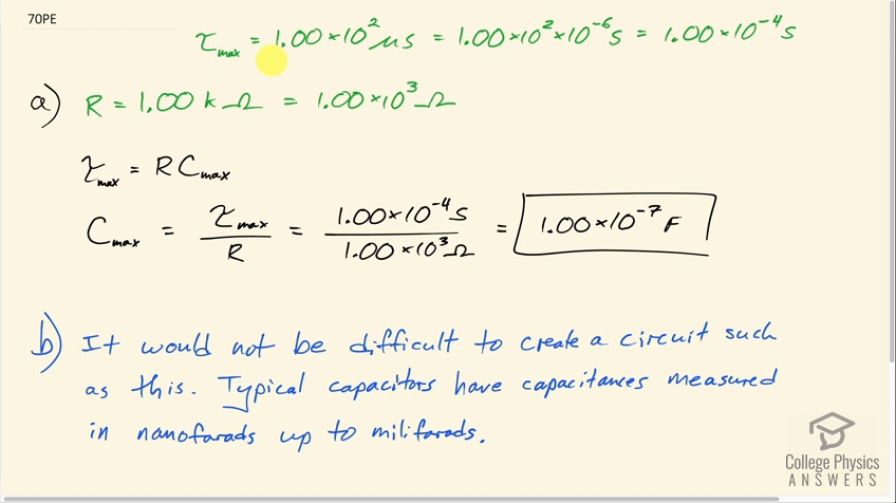 70PE
τmax = 1.00×10² μs = 1.00×10²×10⁻⁶ s = 1.00×10⁻⁴ s
a) R = 1.00 kΩ = 1.00×10³ Ω
τmax = RCmax
Cmax = τmax/R = 1.00×10⁻⁴ s/1.00×10³ Ω = 1.00×10⁻⁷ F
b) It would not be difficult to create a circuit such
as this. Typical capacitors have capacitances measured
in nanofarads up to milifarads.
College Physics
ANSWERS